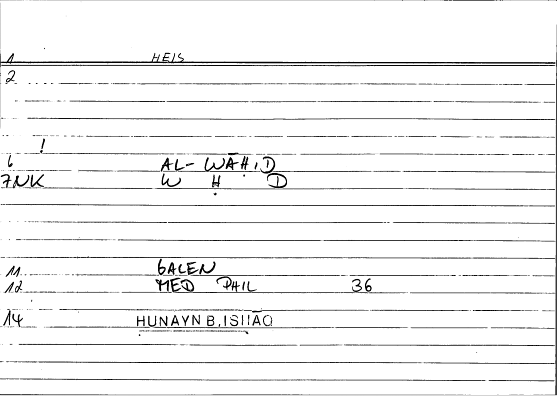 1 HEIS
2
!
6 AL-WĀḤID
7NK W Ḥ D
11 GALEN
12 MED PHIL 36
14 HUNAYN B. ISḤĀQ